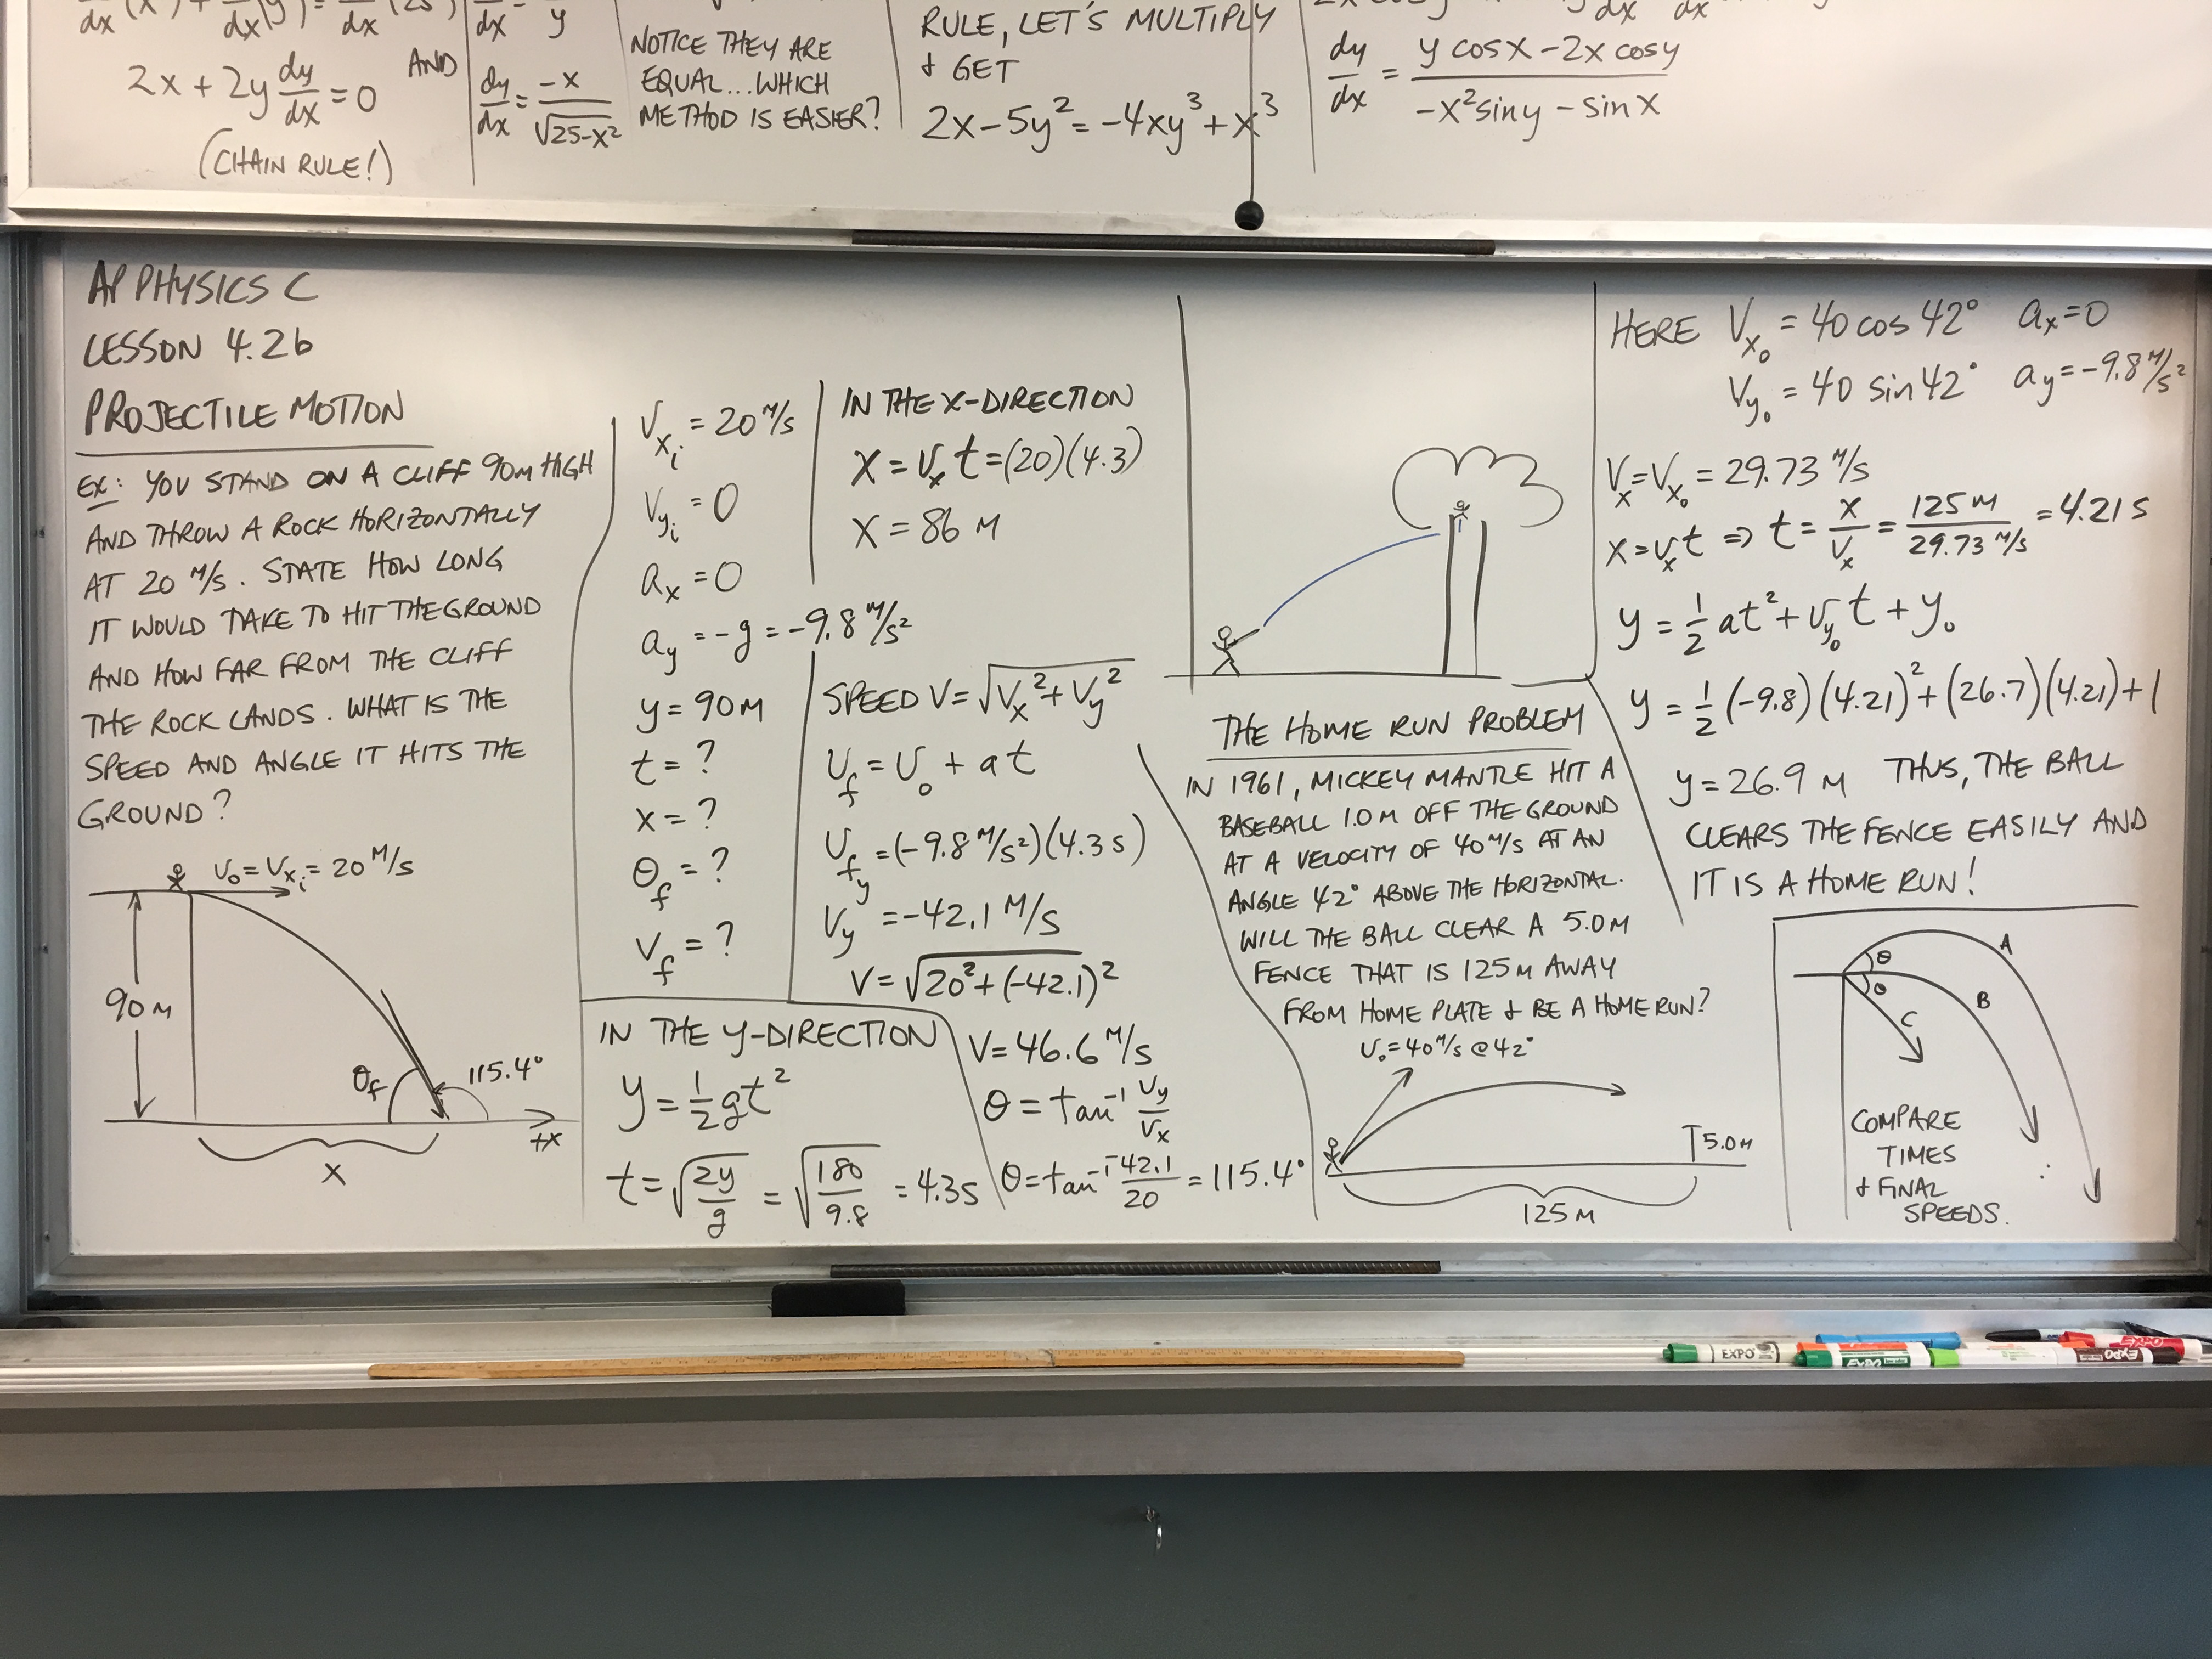 2x + 2y dy/dx = 0
(CHAIN RULE!)
AND
dy/dx = -x/√(25-x²)
NOTICE THEY ARE
EQUAL...WHICH
METHOD IS EASIER?
RULE, LET'S MULTIPLY
& GET
2x - 5y² = -4xy³ + x³
dy/dx = (y cosx - 2x cosy)/(-x² siny - sinx)
AP PHYSICS C
LESSON 4.2b
PROJECTILE MOTION
EX: YOU STAND ON A CLIFF 90M HIGH
AND THROW A ROCK HORIZONTALLY
AT 20 M/S. STATE HOW LONG
IT WOULD TAKE TO HIT THE GROUND
AND HOW FAR FROM THE CLIFF
THE ROCK LANDS. WHAT IS THE
SPEED AND ANGLE IT HITS THE
GROUND?
v₀ = v_xi = 20 M/S
90 M
θ_f
115.4°
+X
X
V_xi = 20 M/S
V_yi = 0
a_x = 0
a_y = -g = -9.8 M/S²
y = 90M
t = ?
x = ?
θ_f = ?
V_f = ?
IN THE X-DIRECTION
X = v_x t = (20)(4.3)
X = 86 M
SPEED V = √(V_x² + V_y²)
v_f = v₀ + at
v_fy = (-9.8 M/S²)(4.3 s)
V_y = -42.1 M/S
V = √(20² + (-42.1)²)
V = 46.6 M/S
θ = tan⁻¹ v_y/v_x
θ = tan⁻¹ -42.1/20 = 115.4°
IN THE Y-DIRECTION
y = 1/2 gt²
t = √(2y/g) = √(180/9.8) = 4.3s
THE HOME RUN PROBLEM
IN 1961, MICKEY MANTLE HIT A
BASEBALL 1.0 M OFF THE GROUND
AT A VELOCITY OF 40 M/S AT AN
ANGLE 42° ABOVE THE HORIZONTAL.
WILL THE BALL CLEAR A 5.0M
FENCE THAT IS 125M AWAY
FROM HOME PLATE & BE A HOME RUN?
v₀ = 40 M/S @ 42°
5.0M
125 M
HERE V_x₀ = 40 cos 42° a_x = 0
V_y₀ = 40 sin 42° a_y = -9.8 M/S²
V_x = V_x₀ = 29.73 M/S
x = v_x t ⇒ t = x/v_x = 125 M/29.73 M/S = 4.21 s
y = 1/2 at² + v_y₀ t + y₀
y = 1/2 (-9.8)(4.21)² + (26.7)(4.21) + 1
y = 26.9 M THUS, THE BALL
CLEARS THE FENCE EASILY AND
IT IS A HOME RUN!
θ
θ
A
B
C
COMPARE
TIMES
& FINAL
SPEEDS.
EXPO
EXPO
EXPO
EXPO